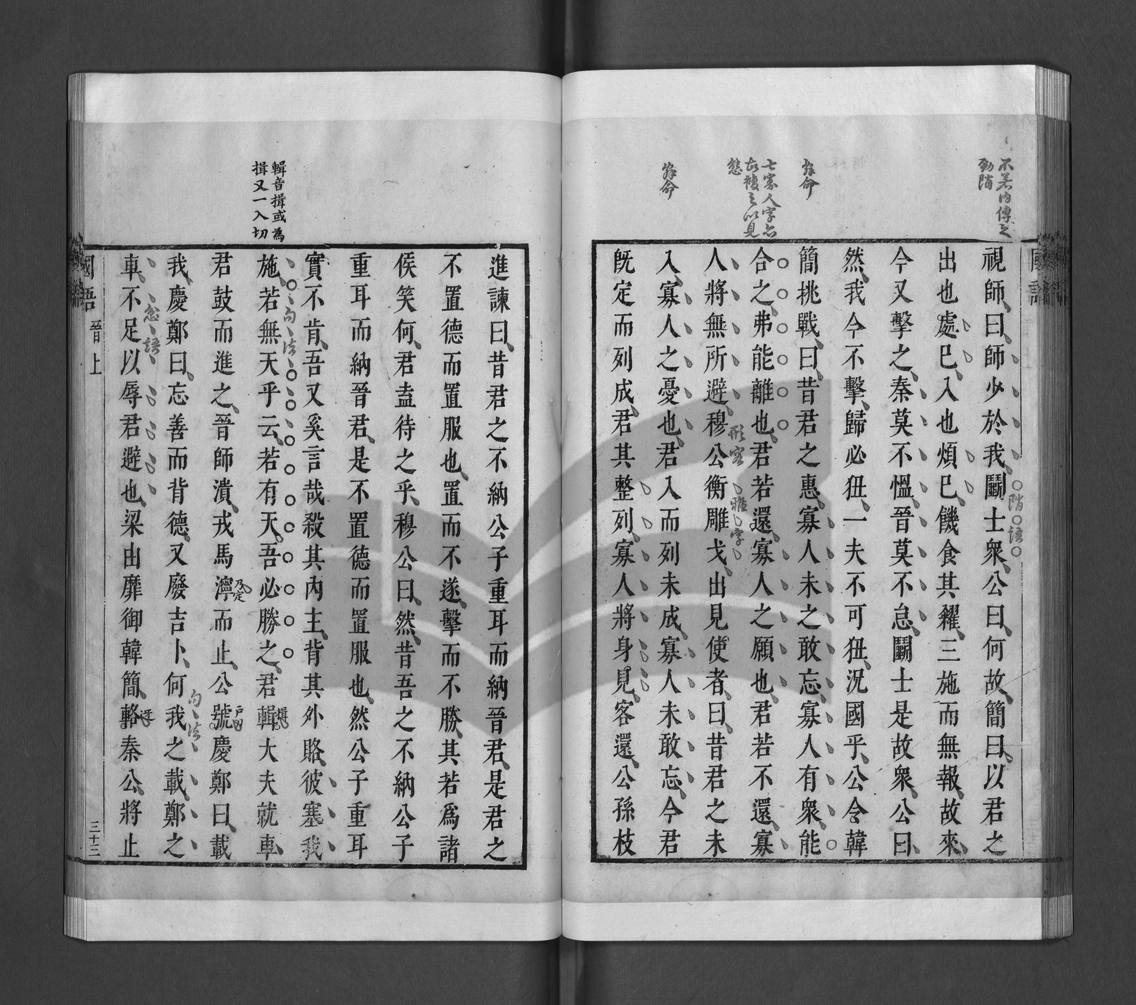 不若內傳之
勁陗
視師曰師少於我鬭士衆公曰何故簡曰以君之
陗語
出也處已入也煩已饑食其糴三施而無報故來
今又擊之秦莫不慍晉莫不怠鬭士是故衆公曰
然我今不擊歸必狃一夫不可狃況國乎公令韓
辭命
簡挑戰曰昔君之惠寡人未之敢忘寡人有衆能
七寡人字
合之弗能離也君若還寡人之願也君若不還寡
形容雅字
人將無所避穆公衡雕戈出見使者曰昔君之未
辭命
入寡人之憂也君入而列未成寡人未敢忘今君
旣定而列成君其整列寡人將身見客還公孫枝
進諫曰昔君之不納公子重耳而納晉君是君之
不置德而置服也置而不遂擊而不勝其若爲諸
侯笑何君盍待之乎穆公曰然昔吾之不納公子
重耳而納晉君是不置德而置服也然公子重耳
實不肯吾又奚言哉殺其內主背其外賂彼塞我
句法
輯音揖或為
揖又一入切
施若無天乎云若有天吾必勝之君輯大夫就車
君鼓而進之晉師潰戎馬濘而止公號慶鄭曰載
句法
我慶鄭曰忘善而背德又廢吉卜何我之載鄭之
忿語
車不足以辱君避也梁由靡御韓簡輅秦公將止
國語 晉上 三十三